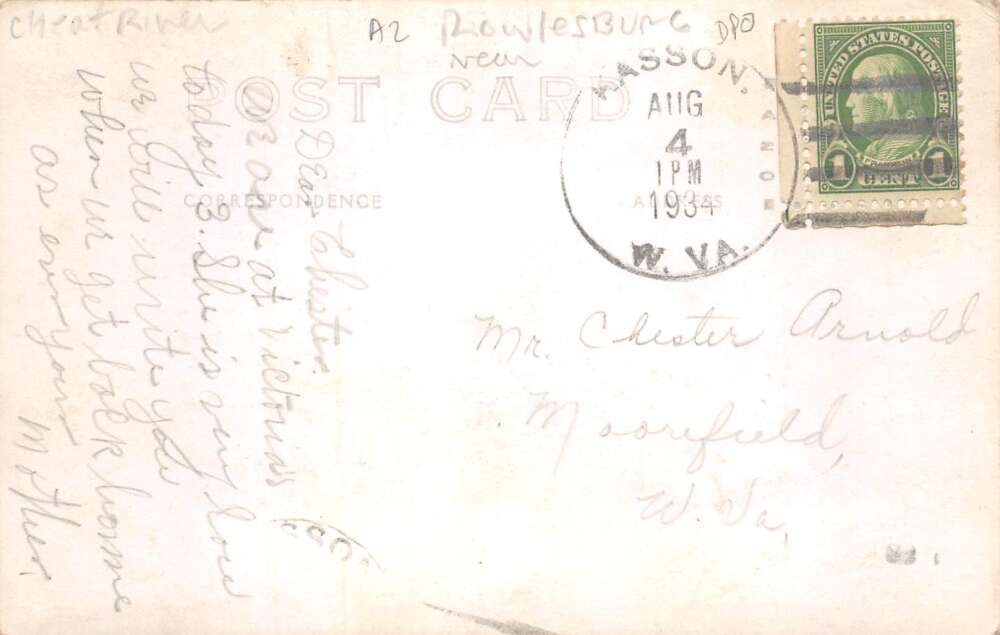 Cheat River
A2 Rowlesburg DPO
near
POST CARD
CORRESPONDENCE
ADDRESS
HASSON.
AUG
4
1 PM
1934
W. VA.
UNITED STATES POSTAGE
FRANKLIN
1 CENT 1
Mr. Chester Arnold
Moorefield,
W. Va,
Dear Chester.
we are at Victoria's
today. She is very low
we will write you
when we get back home
as ever your
Mother.